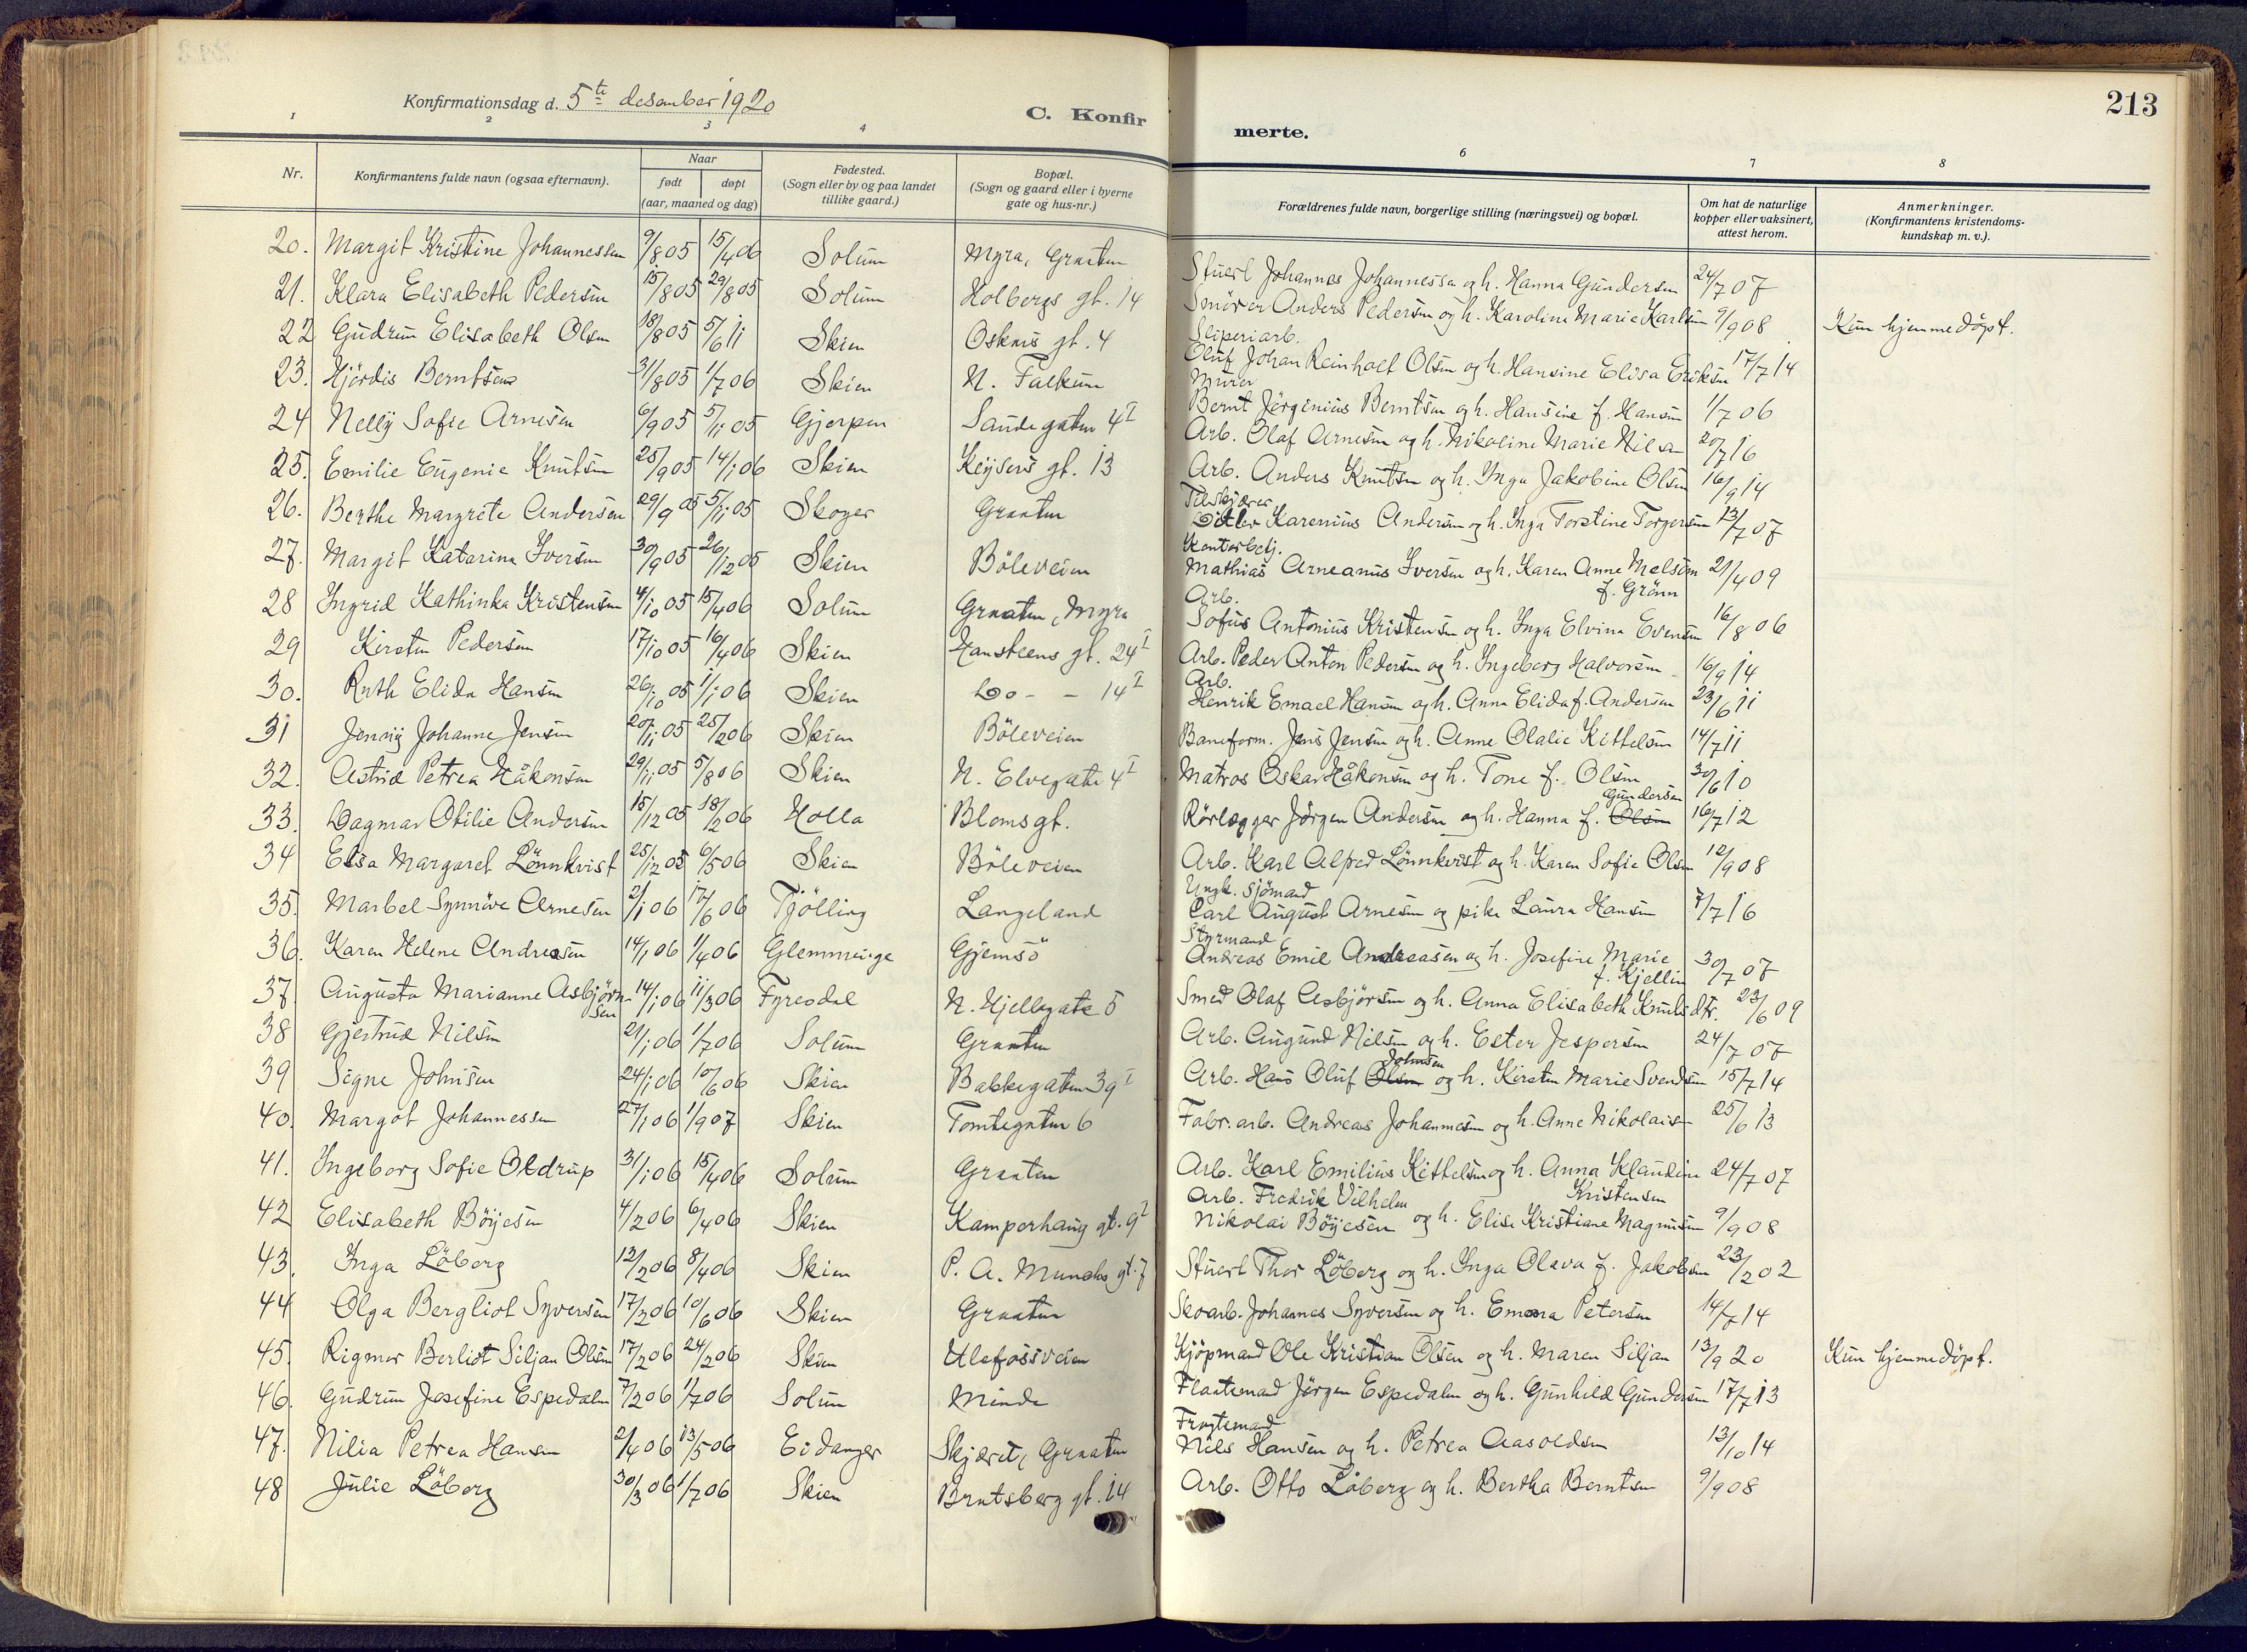 213
Konfirmationsdag d. 5te desember 1920
C. Konfir
merte.
1 2 3 4 6 7 8
Nr.
Konfirmantens fulde navn (ogsaa efternavn).
Naar
født
døpt
(aar, maaned og dag)
Fødested.
(Sogn eller by og paa landet
tillike gaard.)
Bopæl.
(Sogn og gaard eller i byerne
gate og hus-nr.)
Forældrenes fulde navn, borgerlige stilling (næringsvei) og bopæl.
Om hat de naturlige
kopper eller vaksinert,
attest herom.
Anmerkninger.
(Konfirmantens kristendoms-
kundskap m. v.).
20. Margit Kristine Johannessen 9/8 05 15/4 06 Solum Myra, Graaten Stuert Johannes Johannessen og h. Hanna Gundersen 24/7 07
21. Klara Elisabeth Pedersen 15/8 05 29/8 05 Solum Holbergs gt. 14 Smörer Anders Pedersen og h. Karoline Marie Karlsen 9/9 08 Kun hjemmedöpt.
22 Gudrun Elisabeth Olsen 18/8 05 5/6 11 Skien Oskars gt. 4 Sliperiarb.
Oluf Johan Reinholt Olsen og h. Hansine Elisa Eriksen 17/7 14
23. Hjördis Berntsen 31/8 05 1/7 06 Skien N. Falkum Murer
Bernt Jörginius Berntsen og h. Hansine f. Hansen 1/7 06
24 Nelly Sofie Arnesen 6/9 05 5/11 05 Gjerpen Laudegaten 4 I Arb. Olaf Arnesen og h. Nikoline Marie Nilsen 20/7 16
25. Emilie Eugenie Knutsen 25/9 05 14/1 06 Skien Keysers gt. 13 Arb. Anders Knutsen og h. Inga Jakobine Olsen 16/9 14
26. Berthe Margrete Andersen 29/9 05 5/11 05 Skoger Graaten Tilskjærer
Ditlev Karenius Andersen og h. Inga Torstine Torgersen 13/7 07
27. Margit Katarina Iversen 30/9 05 26/12 05 Skien Böleveien Kontorbetj.
Mathias Arneanus Iversen og h. Karen Anne Melsom 21/4 09
f. Grönn
28 Ingrid Kathinka Kristensen 4/10 05 15/4 06 Solum Graaten, Myra Arb.
Sofus Antonius Kristensen og h. Inga Elvina Evensen 16/8 06
29 Kirsten Pedersen 17/10 05 16/4 06 Skien Hansteens gt. 24 I Arb. Peder Anton Pedersen og h. Ingeborg Halvorsen 16/9 14
30. Ruth Elida Hansen 26/10 05 1/1 06 Skien Do - - 14 I Arb.
Henrik Emael Hansen og h. Anna Elida f. Andersen 23/6 11
31 Jenny Johanne Jensen 20/11 05 25/2 06 Skien Böleveien Baneform. Jens Jensen og h. Anne Olalie Kittelsen 14/7 11
32. Astrid Petrea Håkonsen 29/11 05 5/8 06 Skien N. Elvegate 4 I Matros Oskar Håkonsen og h. Tone f. Olsen 30/6 10
33. Dagmar Otilie Andersen 15/12 05 18/2 06 Holla Blomsgt. Rörlegger Jörgen Andersen og h. Hanna f. Olsen Gundersen 16/7 12
34 Elsa Margaret Lönnkvist 25/12 05 6/5 06 Skien Böleveien Arb. Karl Alfred Lönnkvist og h. Karen Sofie Olsen 12/9 08
35. Marbel Synnöve Arnesen 2/1 06 17/6 06 Tjölling Langeland Ungk. Sjömand
Carl August Arnesen og pike Laura Hansen 7/7 16
36. Karen Helene Andreasen 14/1 06 1/4 06 Glemminge Gjemsö Styrmand
Andreas Emil Andreasen og h. Josefine Marie 30/7 07
f. Kjellin
37. Augusta Marianne Asbjörn-
sen 14/1 06 11/3 06 Fyresdal N. Hjellegate 5 Smed Olaf Asbjörsen og h. Anna Elisabeth Knutsdtr. 23/6 09
38 Gjertrud Nilsen 21/1 06 1/7 06 Solum Graaten Arb. Augund Nilsen og h. Ester Jespersen 24/7 07
39 Signe Johnsen 24/1 06 10/6 06 Skien Bakkegaten 39 I Arb. Hans Oluf Olsen Johnsen og h. Kirsten Marie Svendsen 15/7 14
40. Margot Johannessen 27/1 06 1/9 07 Skien Tomtegaten 6 Fabr. arb. Andreas Johannesen og h. Anne Nikolaisen 25/6 13
41. Ingeborg Sofie Oldrup 31/1 06 15/4 06 Solum Graaten Arb. Karl Emilius Kittelsen og h. Anna Klaudine 24/7 07
Kristensen
42 Elisabeth Böyesen 4/2 06 6/4 06 Skien Kamperhaug gt. 9 I Arb. Fredrik Vilhelm
Nikolai Böyesen og h. Elise Kristiane Magnusen 9/9 08
43. Inga Löberg 12/2 06 8/4 06 Skien P. A. Munchs gt. 7 Stuert Thor Löberg og h. Inga Olava f. Jakobsen 23/2 02
44 Olga Bergliot Syversen 17/2 06 10/6 06 Skien Graaten Skoarb. Johannes Syversen og h. Emma Petersen 14/7 14
45. Rigmor Berliot Siljan Olsen 17/2 06 24/2 06 Skien Ulefossveien Kjöpmand Ole Kristian Olsen og h. Maren Siljan 13/9 20 Kun hjemmedöpt.
46. Gudrun Josefine Espedalen 7/2 06 1/7 06 Solum Minde Flaatemand Jörgen Espedalen og h. Gunhild Gundersen 17/7 13
47. Nilia Petrea Hansen 2/4 06 13/5 06 Eidanger Skjæret, Graaten Fragtemand
Nils Hansen og h. Petrea Aasoldsen 13/10 14
48 Julie Löberg 30/3 06 1/7 06 Skien Bratsberg gt. 14 Arb. Otto Löberg og h. Bertha Berntsen 9/9 08